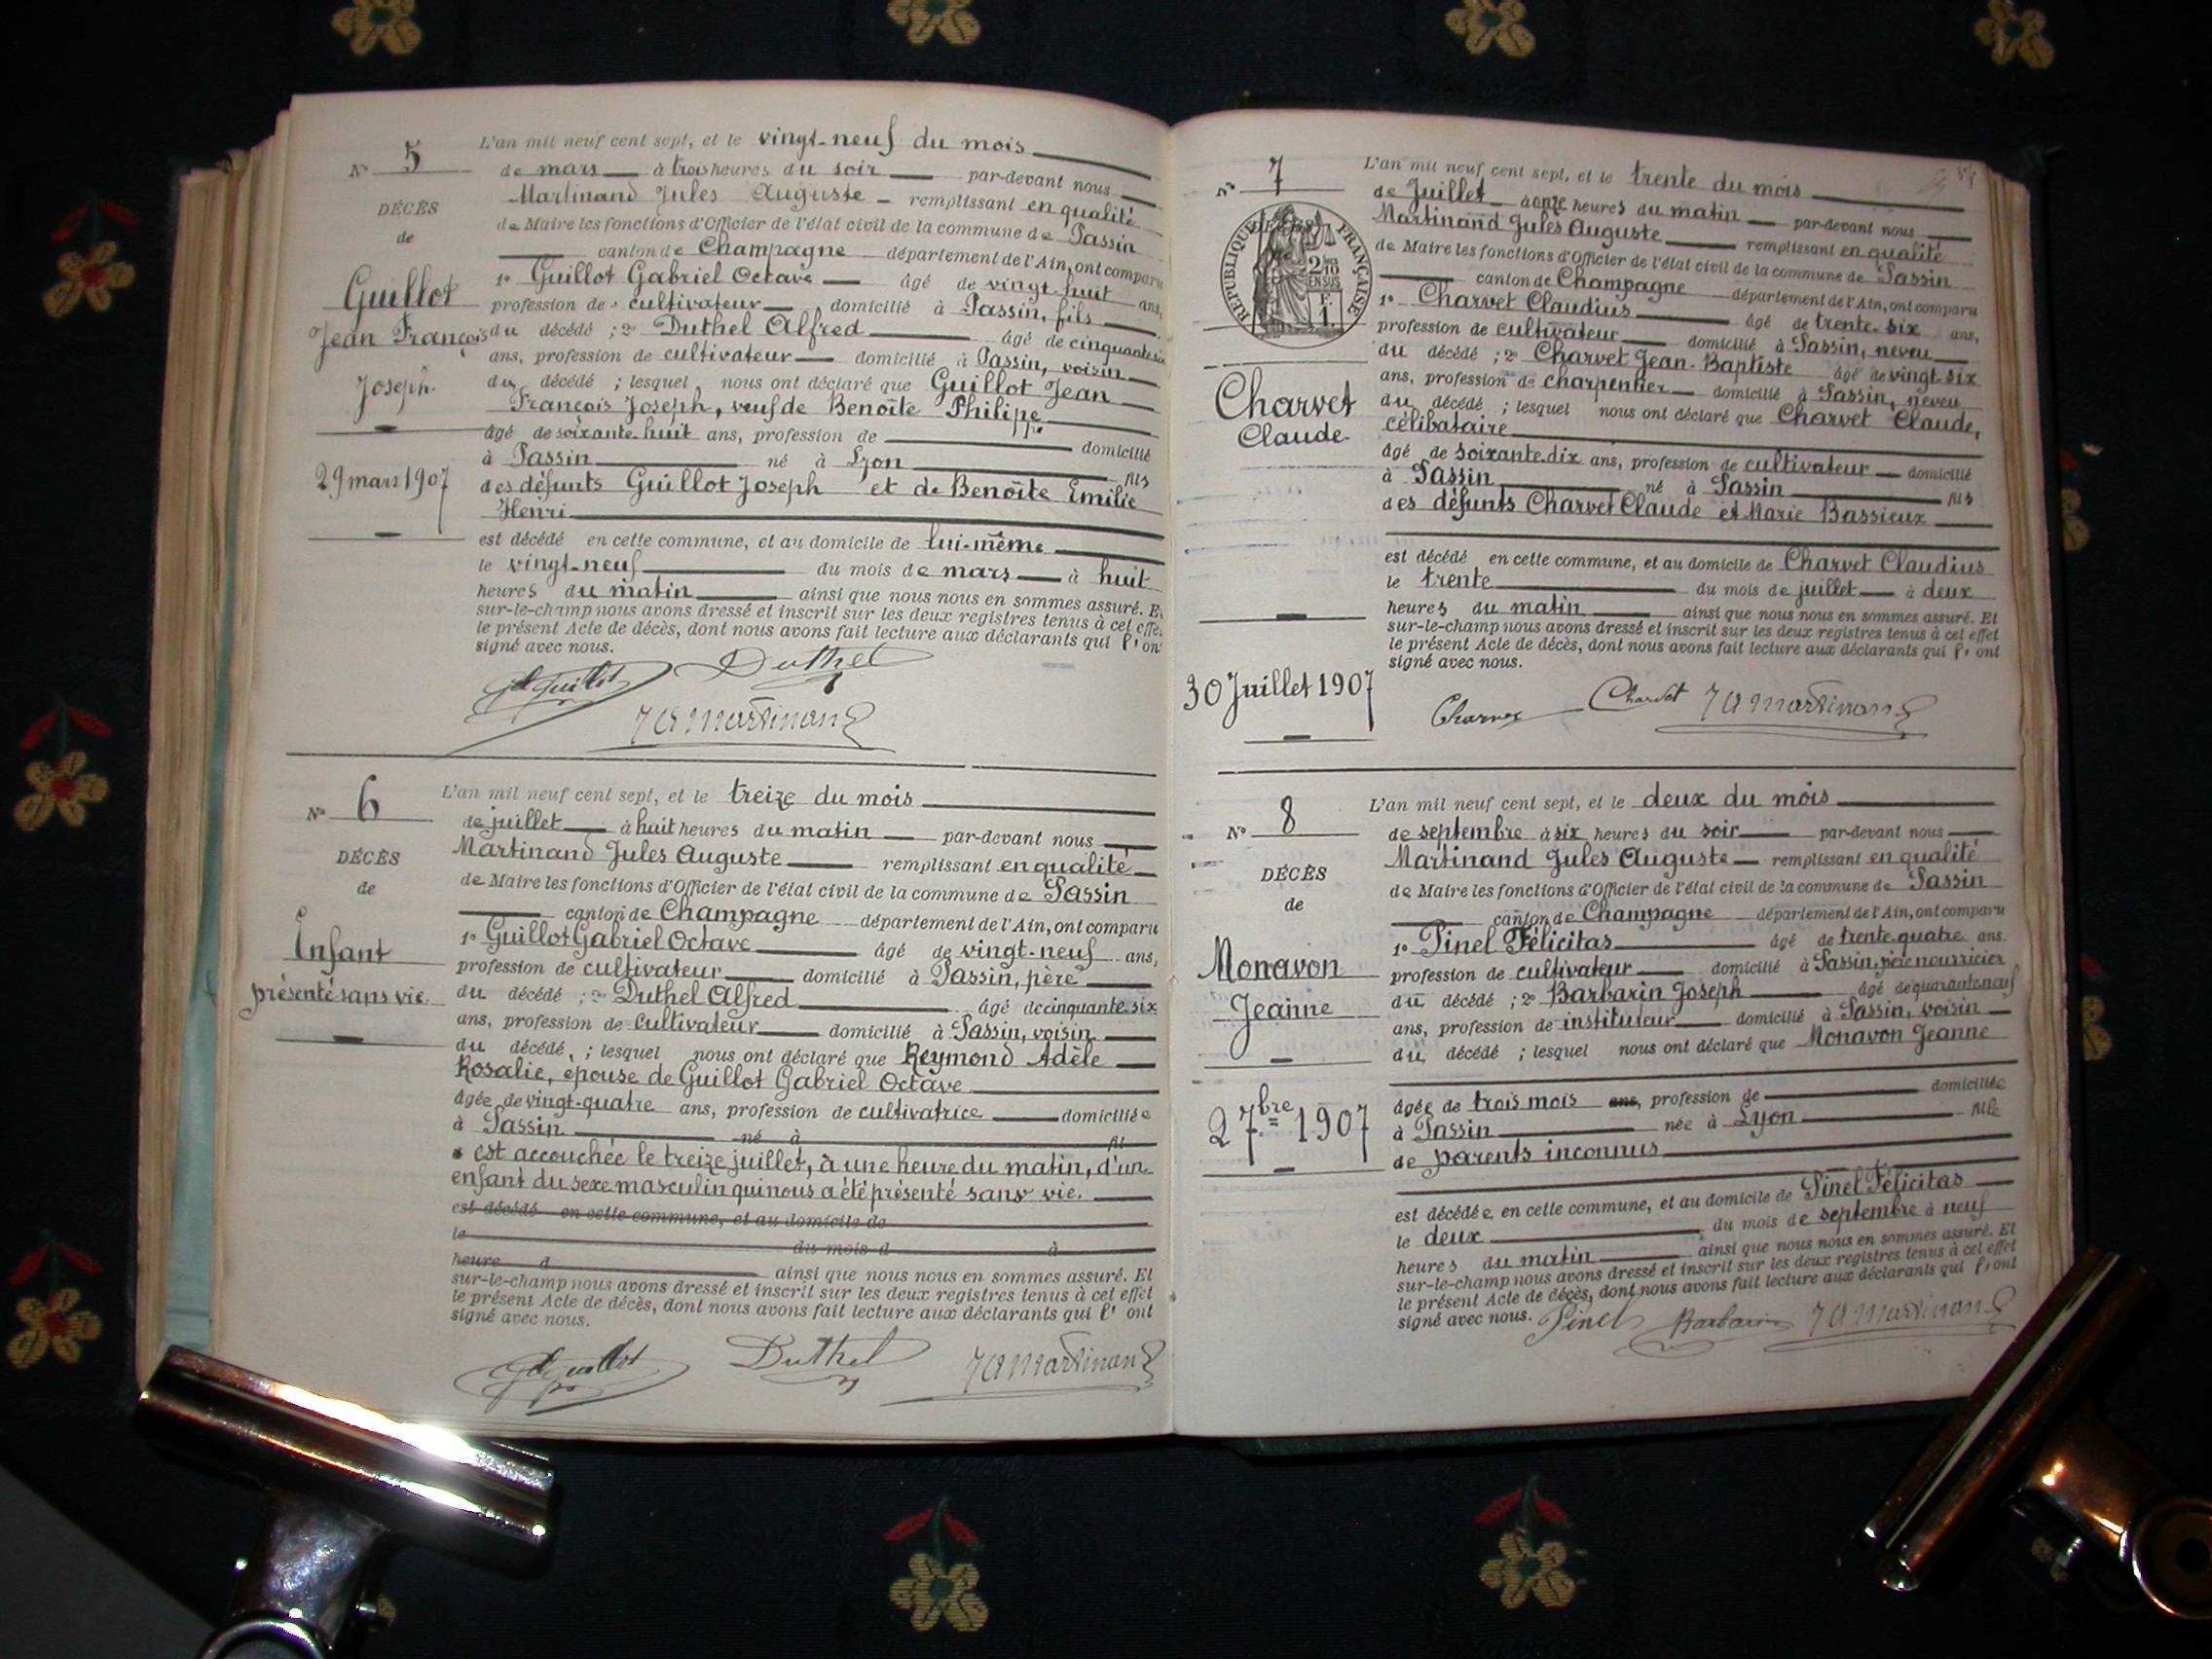 N° 5
DÉCÈS
de
Guillot
Jean François
Joseph.
29 mars 1907
L'an mil neuf cent sept, et le vingt-neuf du mois
de mars à trois heures du soir par-devant nous
Martinand Jules Auguste remplissant en qualité
de Maire les fonctions d'Officier de l'état civil de la commune de Passin
canton de Champagne département de l'Ain, ont comparu
1° Guillot Gabriel Octave âgé de vingt-huit ans,
profession de cultivateur domicilié à Passin, fils
du décédé ; 2° Duthel Alfred âgé de cinquante six
ans, profession de cultivateur domicilié à Passin, voisin
du décédé ; lesquel nous ont déclaré que Guillot Jean
François Joseph, veuf de Benoîte Philippe
âgé de soixante-huit ans, profession de domicilié
à Passin né à Lyon fils
des défunts Guillot Joseph et de Benoîte Emilie
Henri
est décédé en cette commune, et au domicile de lui-même
le vingt-neuf du mois de mars à huit
heures du matin ainsi que nous nous en sommes assuré. Et
sur-le-champ nous avons dressé et inscrit sur les deux registres tenus à cet effet
le présent Acte de décès, dont nous avons fait lecture aux déclarants qui l'ont
signé avec nous.
Guillot Duthel
JA Martinand
N° 6
DÉCÈS
de
Enfant
présenté sans vie.
L'an mil neuf cent sept, et le treize du mois
de juillet à huit heures du matin par-devant nous
Martinand Jules Auguste remplissant en qualité
de Maire les fonctions d'Officier de l'état civil de la commune de Passin
canton de Champagne département de l'Ain, ont comparu
1° Guillot Gabriel Octave âgé de vingt-neuf ans,
profession de cultivateur domicilié à Passin, père
du décédé ; 2° Duthel Alfred âgé de cinquante-six
ans, profession de cultivateur domicilié à Passin, voisin
du décédé, ; lesquel nous ont déclaré que Reymond Adèle
Rosalie, épouse de Guillot Gabriel Octave
âgée de vingt-quatre ans, profession de cultivatrice domiciliée
à Passin né à fil
est accouchée le treize juillet, à une heure du matin, d'un
enfant du sexe masculin qui nous a été présenté sans vie.
est décédé en cette commune, et au domicile de
le du mois d à
heure d ainsi que nous nous en sommes assuré. Et
sur-le-champ nous avons dressé et inscrit sur les deux registres tenus à cet effet
le présent Acte de décès, dont nous avons fait lecture aux déclarants qui l'ont
signé avec nous.
Guillot Duthel JA Martinand
N° 7
RÉPUBLIQUE FRANÇAISE
2/10 EN SUS
F. 1.
Charvet
Claude
30 Juillet 1907
L'an mil neuf cent sept, et le trente du mois
de Juillet à onze heures du matin par-devant nous
Martinand Jules Auguste remplissant en qualité
de Maire les fonctions d'Officier de l'état civil de la commune de Passin
canton de Champagne département de l'Ain, ont comparu
1° Charvet Claudius âgé de trente-six ans,
profession de cultivateur domicilié à Passin, neveu
du décédé ; 2° Charvet Jean-Baptiste âgé de vingt six
ans, profession de charpentier domicilié à Passin, neveu
du décédé ; lesquel nous ont déclaré que Charvet Claude,
célibataire
âgé de soixante-dix ans, profession de cultivateur domicilié
à Passin né à Passin fils
des défunts Charvet Claude et Marie Bassieux
est décédé en cette commune, et au domicile de Charvet Claudius
le trente du mois de juillet à deux
heures du matin ainsi que nous nous en sommes assuré. Et
sur-le-champ nous avons dressé et inscrit sur les deux registres tenus à cet effet
le présent Acte de décès, dont nous avons fait lecture aux déclarants qui l'ont
signé avec nous.
Charvet Charvet JA Martinand
N° 8
DÉCÈS
de
Monavon
Jeanne
2 7bre 1907
L'an mil neuf cent sept, et le deux du mois
de septembre à six heures du soir par-devant nous
Martinand Jules Auguste remplissant en qualité
de Maire les fonctions d'Officier de l'état civil de la commune de Passin
canton de Champagne département de l'Ain, ont comparu
1° Pinel Félicitas âgé de trente-quatre ans.
profession de cultivateur domicilié à Passin, père nourricier
du décédé ; 2° Barbarin Joseph âgé de quarante neuf
ans, profession de instituteur domicilié à Passin, voisin
du, décédé ; lesquel nous ont déclaré que Monavon Jeanne
âgée de trois mois ans, profession de domiciliée
à Passin née à Lyon fille
de parents inconnus
est décédée en cette commune, et au domicile de Pinel Félicitas
le deux du mois de septembre à neuf
heures du matin ainsi que nous nous en sommes assuré. Et
sur-le-champ nous avons dressé et inscrit sur les deux registres tenus à cet effet
le présent Acte de décès, dont nous avons fait lecture aux déclarants qui l'ont
signé avec nous. Pinel Barbarin JA Martinand